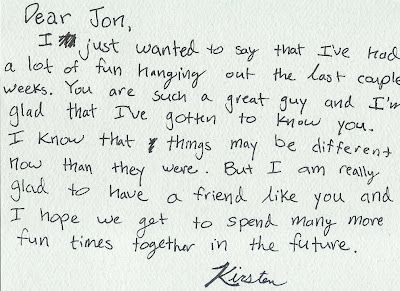 Dear Jon,
I just wanted to say that I've had
a lot of fun hanging out the last couple
weeks. You are such a great guy and I'm
glad that I've gotten to know you.
I know that things may be different
now than they were. But I am really
glad to have a friend like you and
I hope we get to spend many more
fun times together in the future.
Kirsten